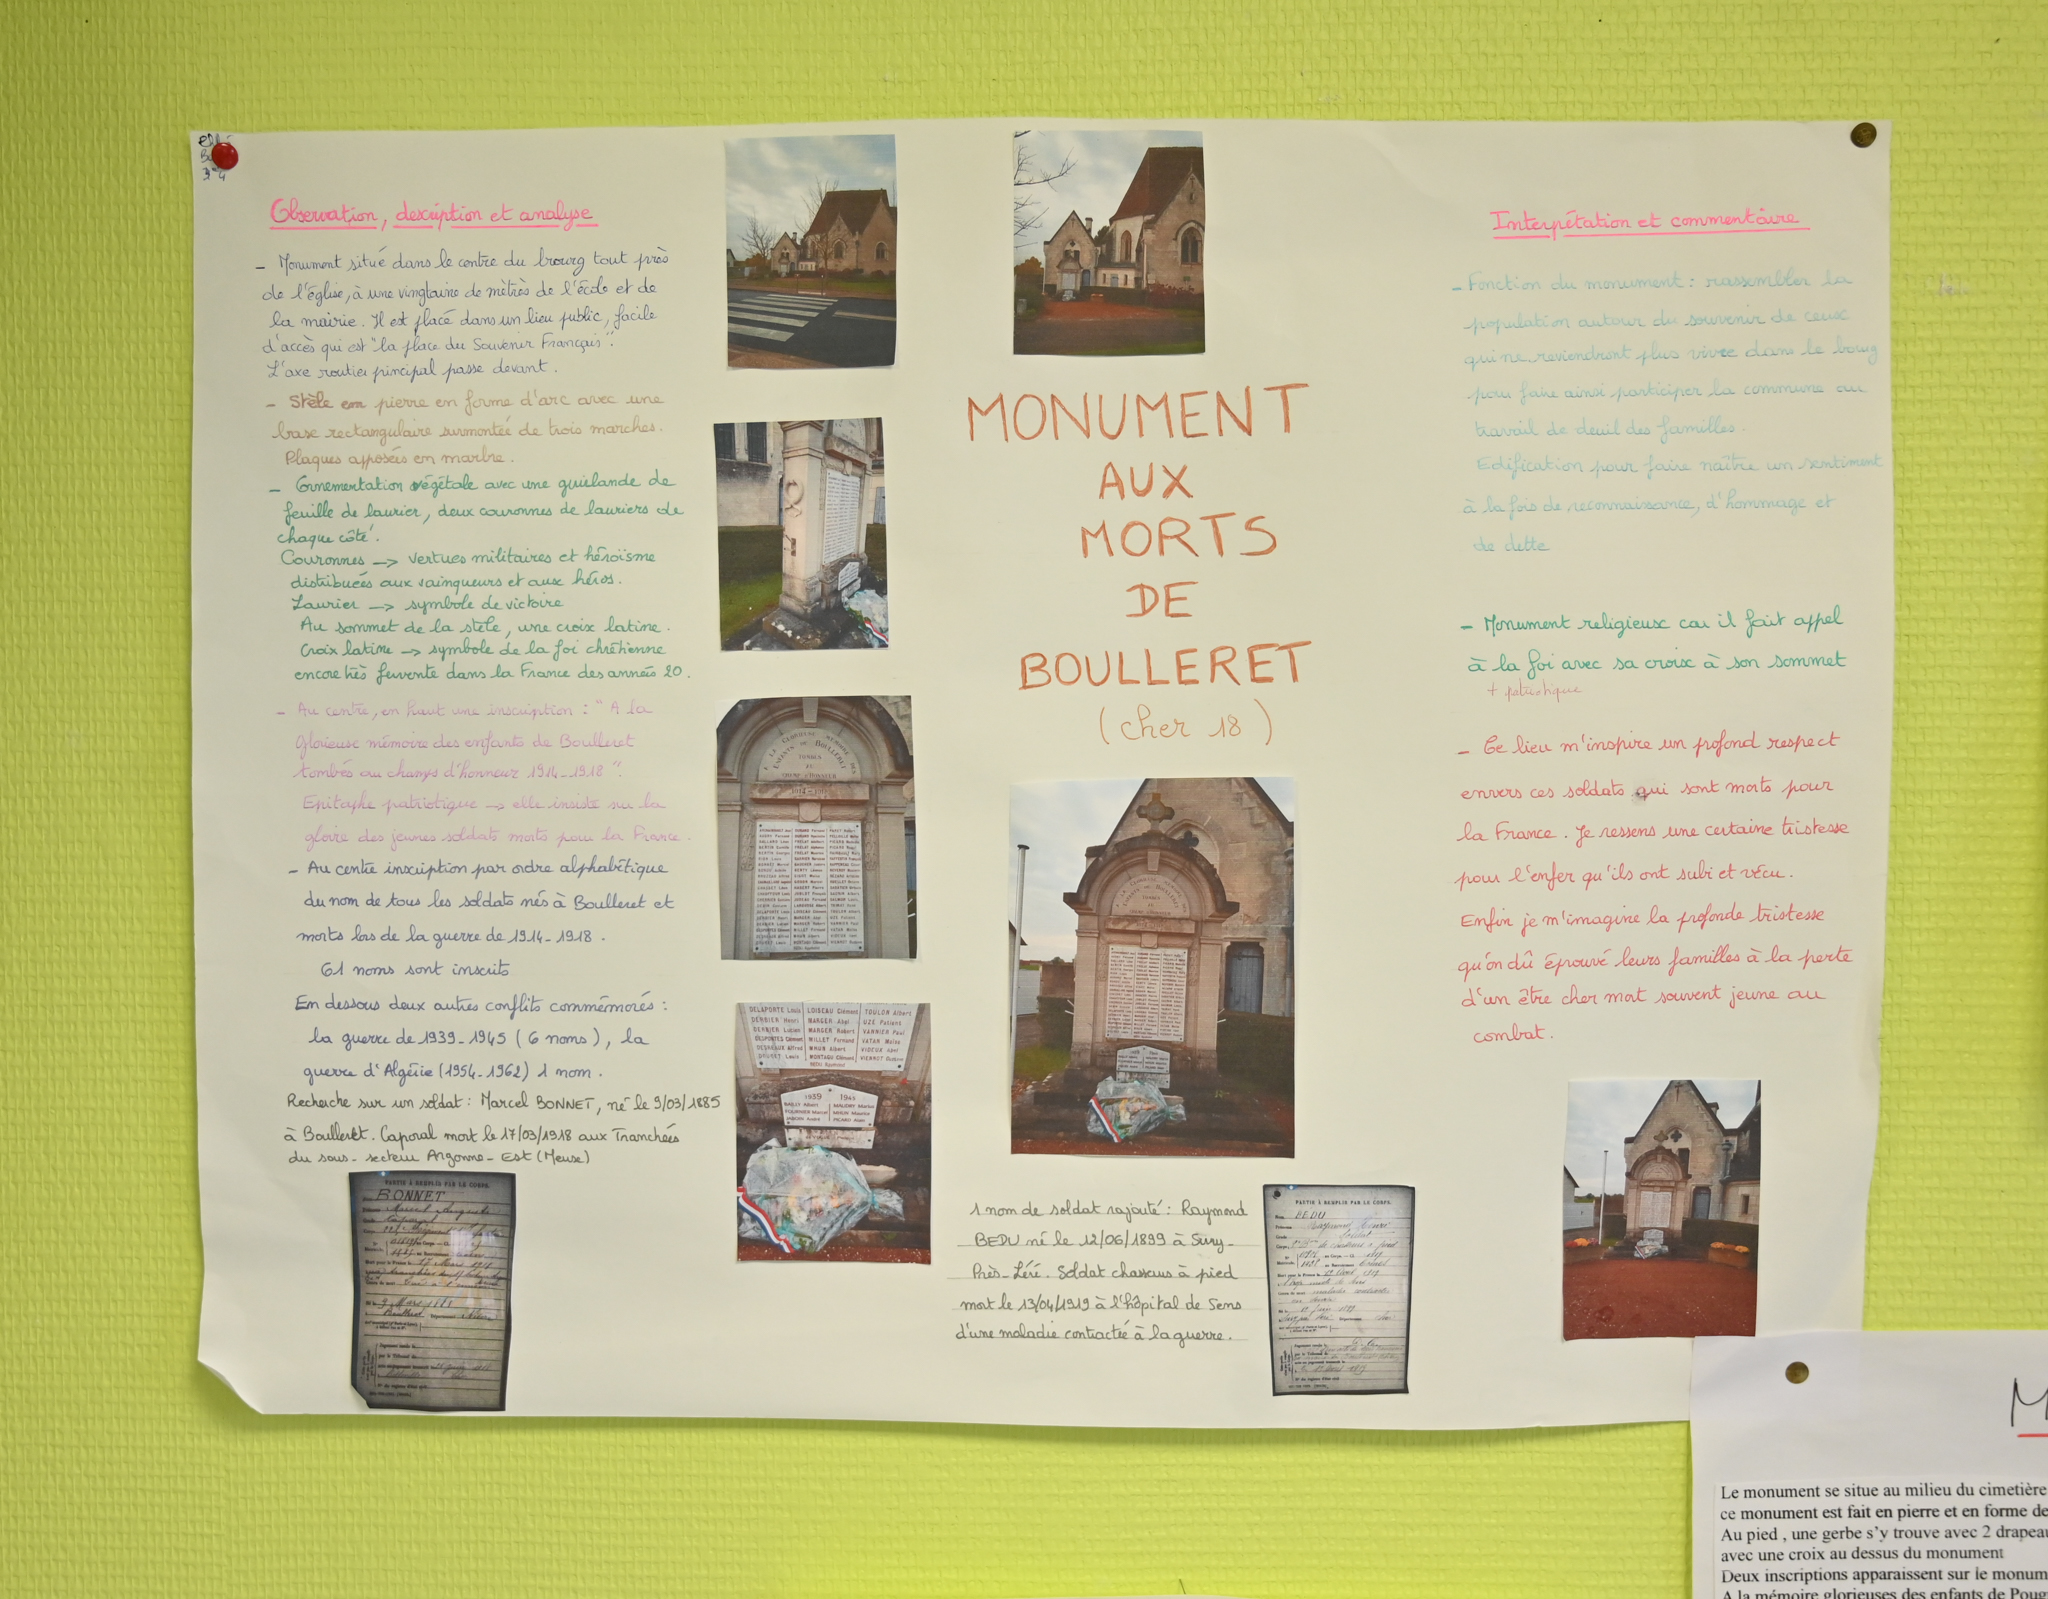 Observation, description et analyse
- Monument situé dans le centre du bourg tout près
de l'église, à une vingtaine de mètres de l'école et de
la mairie. Il est placé dans un lieu public, facile
d'accès qui est "la place du Souvenir Français".
L'axe routier principal passe devant.
- Stèle en pierre en forme d'arc avec une
base rectangulaire surmontée de trois marches.
Plaques apposées en marbre.
- Ornementation végétale avec une guirlande de
feuille de laurier, deux couronnes de lauriers de
chaque côté.
Couronnes -> vertues militaires et héroïsme
distribuées aux vainqueurs et aux héros.
Laurier -> symbole de victoire
Au sommet de la stèle, une croix latine.
Croix latine -> symbole de la foi chrétienne
encore très fervente dans la France des années 20.
- Au centre, en haut une inscription : "A la
Glorieuse mémoire des enfants de Boulleret
tombés au champs d'honneur 1914-1918".
Epitaphe patriotique -> elle insiste sur la
gloire des jeunes soldats morts pour la France.
- Au centre inscription par ordre alphabétique
du nom de tous les soldats nés à Boulleret et
morts lors de la guerre de 1914-1918.
61 noms sont inscrits
En dessous deux autres conflits commémorés :
la guerre de 1939-1945 (6 noms), la
guerre d'Algérie (1954-1962) 1 nom.
Recherche sur un soldat : Marcel BONNET, né le 9/03/1885
à Boulleret. Caporal mort le 17/03/1918 aux Tranchées
du sous-secteur Argonne-Est (Meuse)
PARTIE À REMPLIR PAR LE CORPS.
BONNET
MONUMENT
AUX
MORTS
DE
BOULLERET
(cher 18)
A LA GLORIEUSE MEMOIRE DES
ENFANTS DE BOULLERET
TOMBES
AU
CHAMP D'HONNEUR
1914-1918
DELAPORTE Louis LOISEAU Clément TOULON Albert
DERBIER Henri MARGER Abel UZE Patient
DERBIER Lucien MARGER Robert VANNIER Paul
DESPONTES Clément MILLET Fernand VATAN Moïse
DESREAUX Alfred MHUN Albert VIDEUX Abel
DOURET Louis MONTAGU Edmond VIENNOT Gustave
1939 1945
BAILLY Albert MAUDRY Marius
FOURNIER Marcel MHUN Maurice
JARDIN André PICARD Alain
1 nom de soldat rajouté : Raymond
BEDU né le 12/06/1899 à Sury-
Près-Léré. Soldat chasseurs à pied
mort le 13/04/1919 à l'hôpital de Sens
d'une maladie contractée à la guerre.
PARTIE À REMPLIR PAR LE CORPS.
BEDU
Interprétation et commentaire
- Fonction du monument : rassembler la
population autour du souvenir de ceux
qui ne reviendront plus vivre dans le bourg
pour faire ainsi participer la commune au
travail de deuil des familles.
Edification pour faire naître un sentiment
à la fois de reconnaissance, d'hommage et
de dette
- Monument religieux car il fait appel
à la foi avec sa croix à son sommet
+ patriotique
- Ce lieu m'inspire un profond respect
envers ces soldats qui sont morts pour
la France. Je ressens une certaine tristesse
pour l'enfer qu'ils ont subi et vécu.
Enfin je m'imagine la profonde tristesse
qu'on dû éprouvé leurs familles à la perte
d'un être cher mort souvent jeune au
combat.
M
Le monument se situe au milieu du cimetière
ce monument est fait en pierre et en forme de
Au pied , une gerbe s'y trouve avec 2 drapeau
avec une croix au dessus du monument
Deux inscriptions apparaissent sur le monum
A la mémoire glorieuses des enfants de Poug